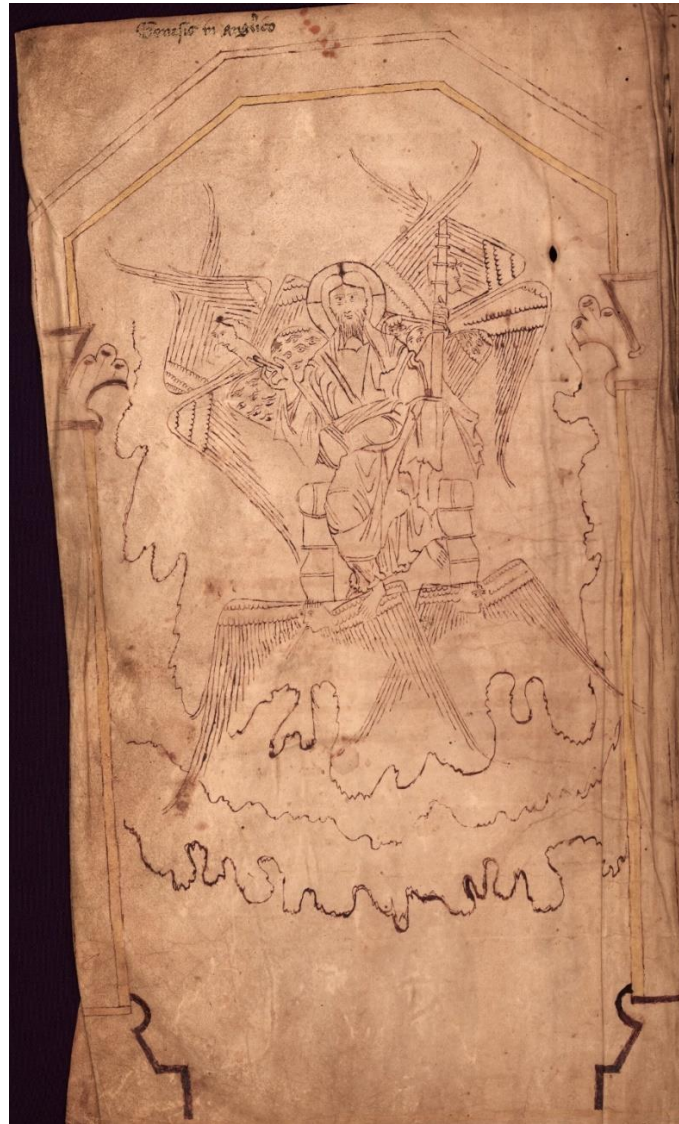 Genesis in anglico